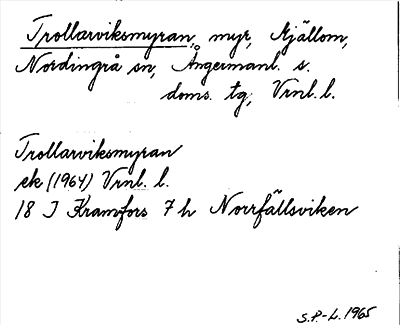 Trollarviksmyran, myr, Mjällom,
Nordingrå sn, Ångermanl. s.
doms. tg, Vrnl. l.
Trollarviksmyran
ek (1964) Vrnl. l.
18 I Kramfors 7 h Norrfällsviken
S.P.-L. 1965